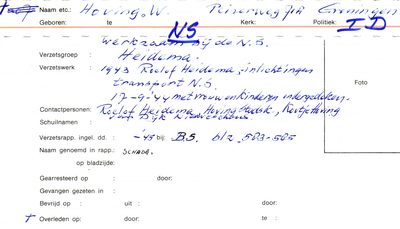 Naam etc.: Hoving. W. Groningen
Geboren: te Kerk: Politiek: I D
NS
werkzaam bij de N.S.
Verzetsgroep : Heidema.
Verzetswerk : 1943 Roelof Heidema, inlichtingen
transport N.S.
17-9-44 met vrouw en kinderen ondergedoken.
Foto
Contactpersonen: Roelof Heidema, Hoving
Schuilnaam :
Verzetsrapp. ingel. dd. : -45 bij: B.S. blz. 583-585
Naam genoemd in rapp.: SCHADR.
op bladzijde:
Gearresteerd op : door:
Gevangen gezeten in :
Bevrijd op : uit : door:
† Overleden op: door: te :